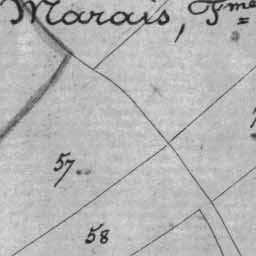 Marais, Fme
57
58